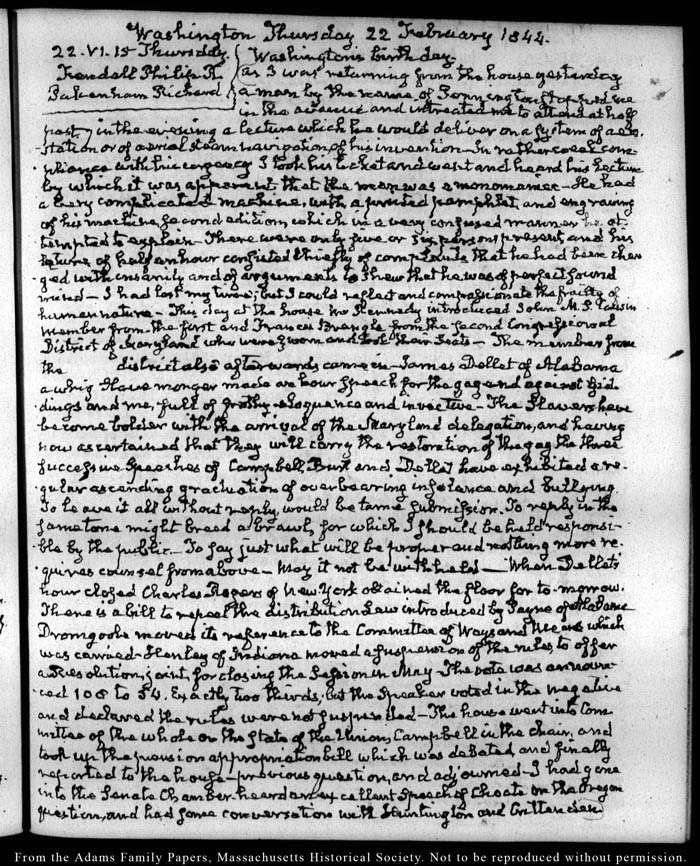 Washington Thursday 22 February 1844.
22. VI. 15 Thursday. Washington's birth day.
Kendall Philip R as I was returning from the house yesterday
Pakenham Richard a man by the name of Pennington stopped me
in the avenue and intreated me to attend at half
past 7 in the evening a lecture which he would deliver on a system of aero
station or of aerial steam navigation of his invention – In rather cool com
pliance with his urgency I took his ticket and went and heard his lecture
by which it was apparent that the man was a monomaniac – He had
a very complicated machine, with a printed pamphlet, and engraving
of his machine, second edition, which in a very confused manner he at
tempted to explain – There were only five or six persons present, and his
lecture of half an hour consisted chiefly of complaints that he had been char
ged with insanity and of arguments to shew that he was of perfect sound
mind – I had lost my time; but I could reflect and compassionate the frailty of
human nature – This day at the house Mr Kennedy introduced John M. S. Causin
member from the first and Francis Brengle from the second Congressional
District of Maryland who were sworn and took their seats – The member from
the district also afterwards came in – James Dellet of Alabama
a whig Slave monger made an hour speech for the gag and against Gid
dings and me, full of frothy eloquence and invective – The Slavers have
become bolder with the arrival of the Maryland delegation, and having
now ascertained that they will carry the restoration of the gag the three
successive Speeches of Campbell, Burt and Dellet have exhibited a re
gular ascending graduation of overbearing insolence and bullying
To leave it all without reply, would be tame submission. To reply in the
same tone might breed a brawl, for which I should be held responsi
ble by the public – To say just what will be proper and nothing more re
quires counsel from above – May it not be withheld – When Dellet's
hour closed Charles Rogers of New York obtained the floor for to-morrow.
There is a bill to repeal the distribution Law introduced by Payne of Alabama
Dromgoole moved its reference to the Committee of Ways and Means which
was carried – Henley of Indiana moved a suspension of the rules, to offer
a Resolution, joint, for closing the Session in May – The vote was announ
ced 108 to 54. Exactly two thirds; but the Speaker voted in the negative
and declared the rules were not suspended – The house went into Com
mittee of the whole on the State of the Union, Campbell in the chair, and
took up the pension appropriation bill which was debated and finally
reported to the house – previous question, and adjourned – I had gone
into the Senate Chamber – heard an excellent Speech of Choate on the Oregon
question, and had some conversation with Huntington and Crittenden
From the Adams Family Papers, Massachusetts Historical Society. Not to be reproduced without permission.